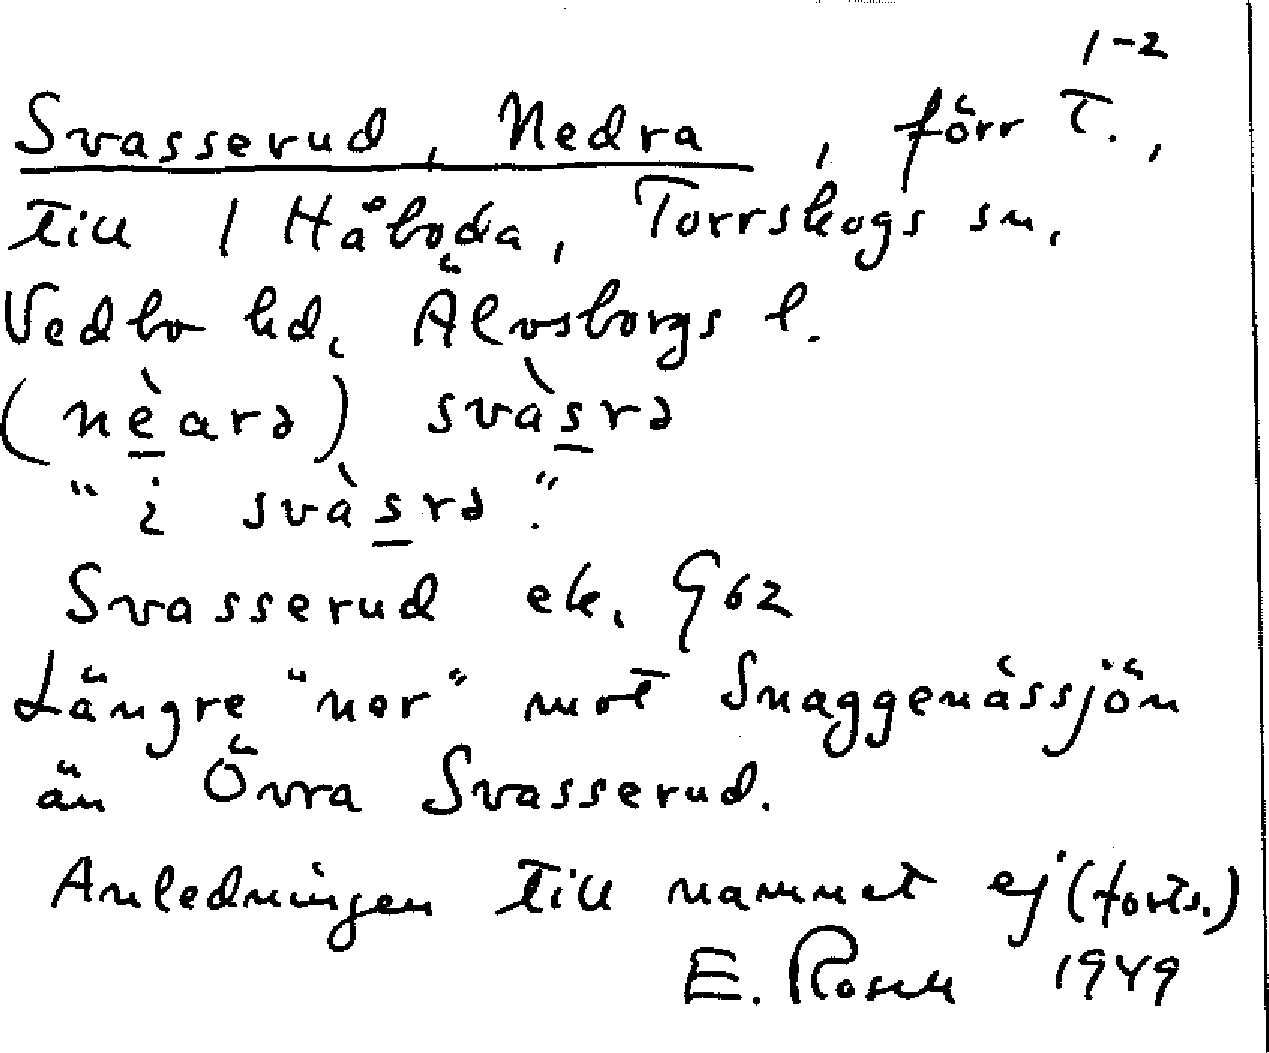 1-2
Svasserud, Nedra, förr T.,
till 1 Håboda, Torrskogs sn,
Vedbo hd, Älvsborgs l.
(nèarə) svàsrə
"i svàsrə".
Svasserud ek. G62
Längre "ner" mot Snaggenässjön
än Övra Svasserud.
Anledningen till namnet ej (forts.)
E. Rosell 1949